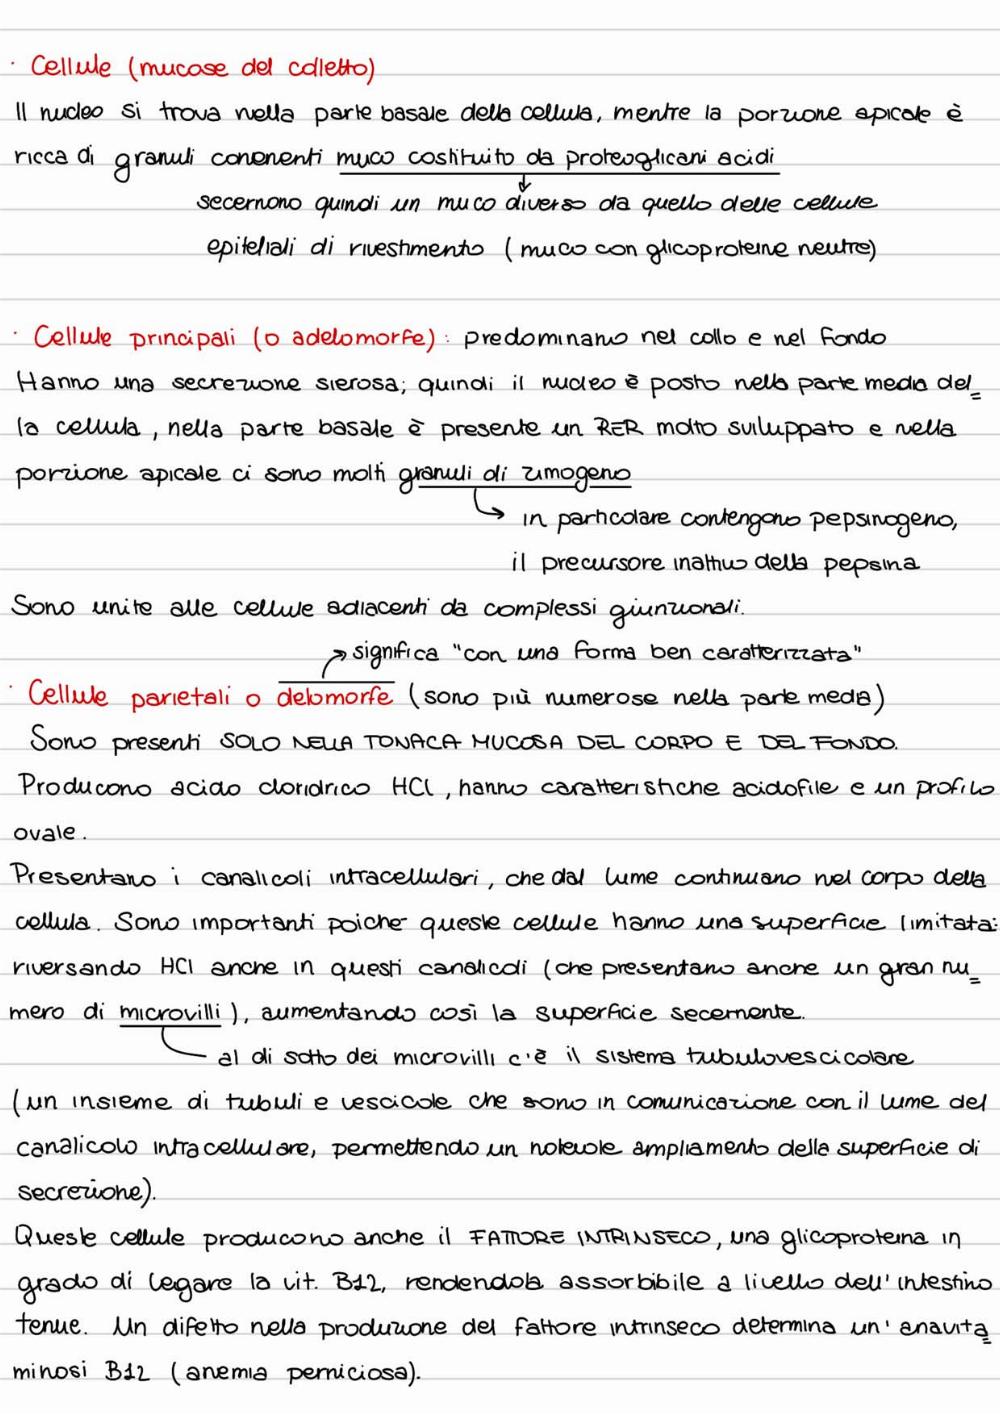 · Cellule (mucose del colletto)
Il nucleo si trova nella parte basale della cellula, mentre la porzione apicale è
ricca di granuli contenenti muco costituito da proteoglicani acidi
secernono quindi un muco diverso da quello delle cellule
epiteliali di rivestimento (muco con glicoproteine neutre)
· Cellule principali (o adelomorfe): predominano nel collo e nel fondo
Hanno una secrezione sierosa; quindi il nucleo è posto nella parte media del=
la cellula, nella parte basale è presente un RER molto sviluppato e nella
porzione apicale ci sono molti granuli di zimogeno
in particolare contengono pepsinogeno,
il precursore inattivo della pepsina
Sono unite alle cellule adiacenti da complessi giunzionali.
significa "con una forma ben caratterizzata"
· Cellule parietali o delomorfe (sono più numerose nella parte media)
Sono presenti SOLO NELLA TONACA MUCOSA DEL CORPO E DEL FONDO.
Producono acido cloridrico HCl, hanno caratteristiche acidofile e un profilo
ovale.
Presentano i canalicoli intracellulari, che dal lume continuano nel corpo della
cellula. Sono importanti poiche queste cellule hanno una superficie limitata:
riversando HCl anche in questi canalicoli (che presentano anche un gran nu=
mero di microvilli), aumentando così la superficie secernente.
al di sotto dei microvilli c'è il sistema tubulovescicolare
(un insieme di tubuli e vescicole che sono in comunicazione con il lume del
canalicolo intracellulare, permettendo un notevole ampliamento della superficie di
secrezione).
Queste cellule producono anche il FATTORE INTRINSECO, una glicoproteina in
grado di legare la vit. B12, rendendola assorbibile a livello dell'intestino
tenue. Un difetto nella produzione del fattore intrinseco determina un'anavita=
minosi B12 (anemia perniciosa).